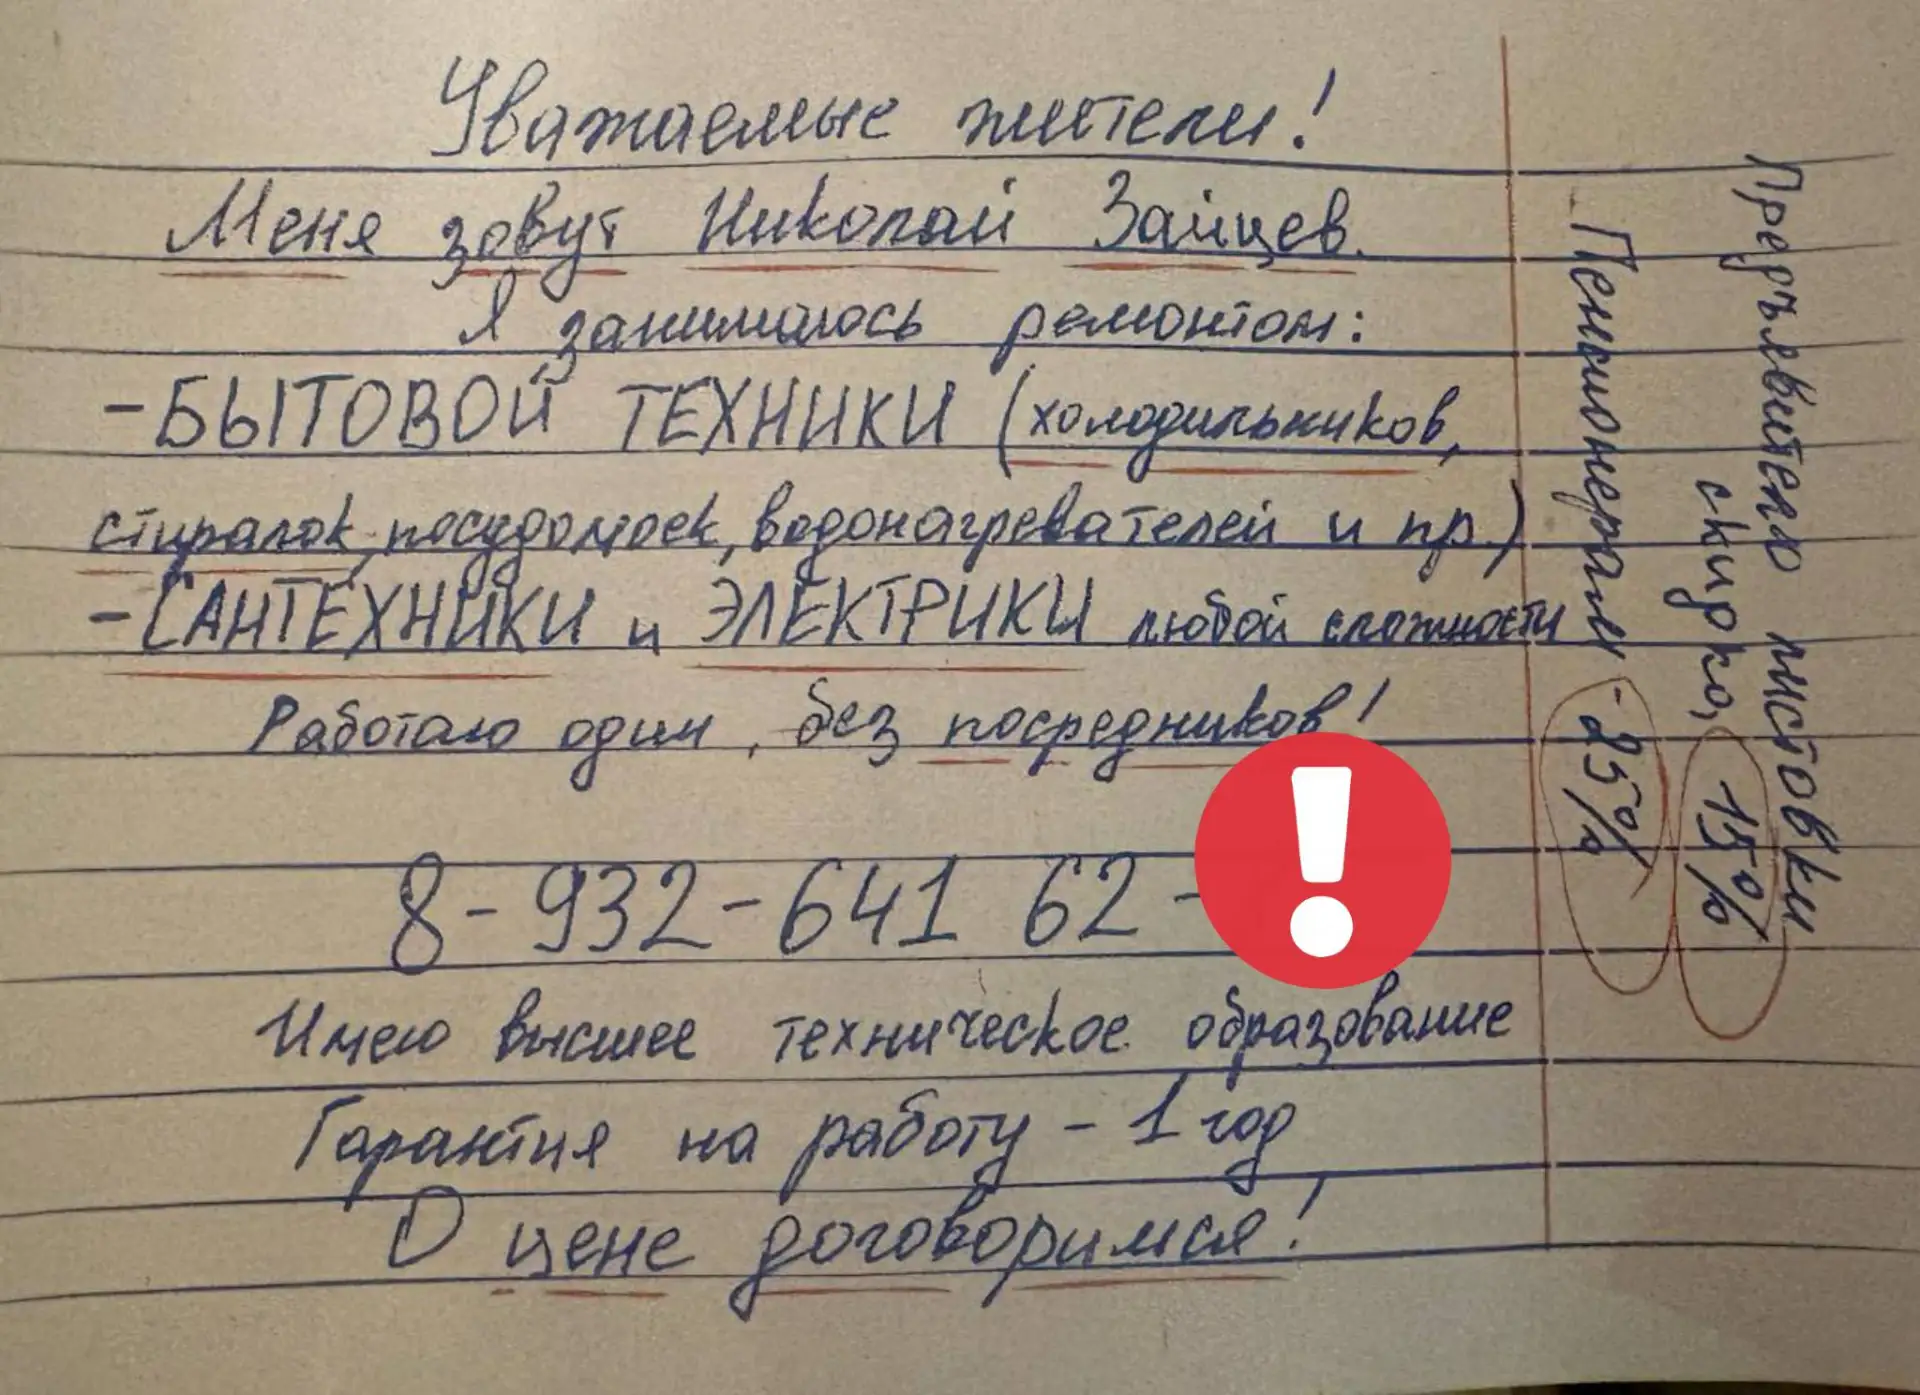 Уважаемые жители!
Меня зовут Николай Зайцев.
Я занимаюсь ремонтом:
- БЫТОВОЙ ТЕХНИКИ (холодильников,
стиралок, посудомоек, водонагревателей и пр.)
- САНТЕХНИКИ и ЭЛЕКТРИКИ любой сложности
Работаю один, без посредников!
8-932-641 62-
Имею высшее техническое образование
Гарантия на работу - 1 год
О цене договоримся!
Предъявителю листовки
скидка, 15%
Пенсионерам - 25%